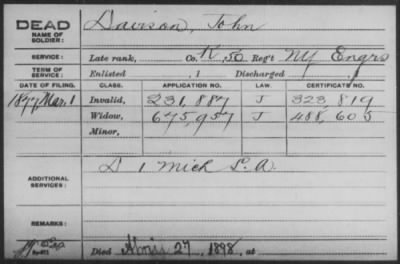 DEAD Davison, John
NAME OF SOLDIER:
SERVICE: Late rank, Co. K, 50 Reg't NY Engrs
TERM OF SERVICE: Enlisted , 1 Discharged , 1
DATE OF FILING. CLASS. APPLICATION NO. LAW. CERTIFICATE NO.
1877 Mar. 1 Invalid, 231,887 J 323,819
Widow, 675,957 J 488,605
Minor,
D 1 Mich L. A.
ADDITIONAL SERVICES:
REMARKS:
Died April 27, 1898, at